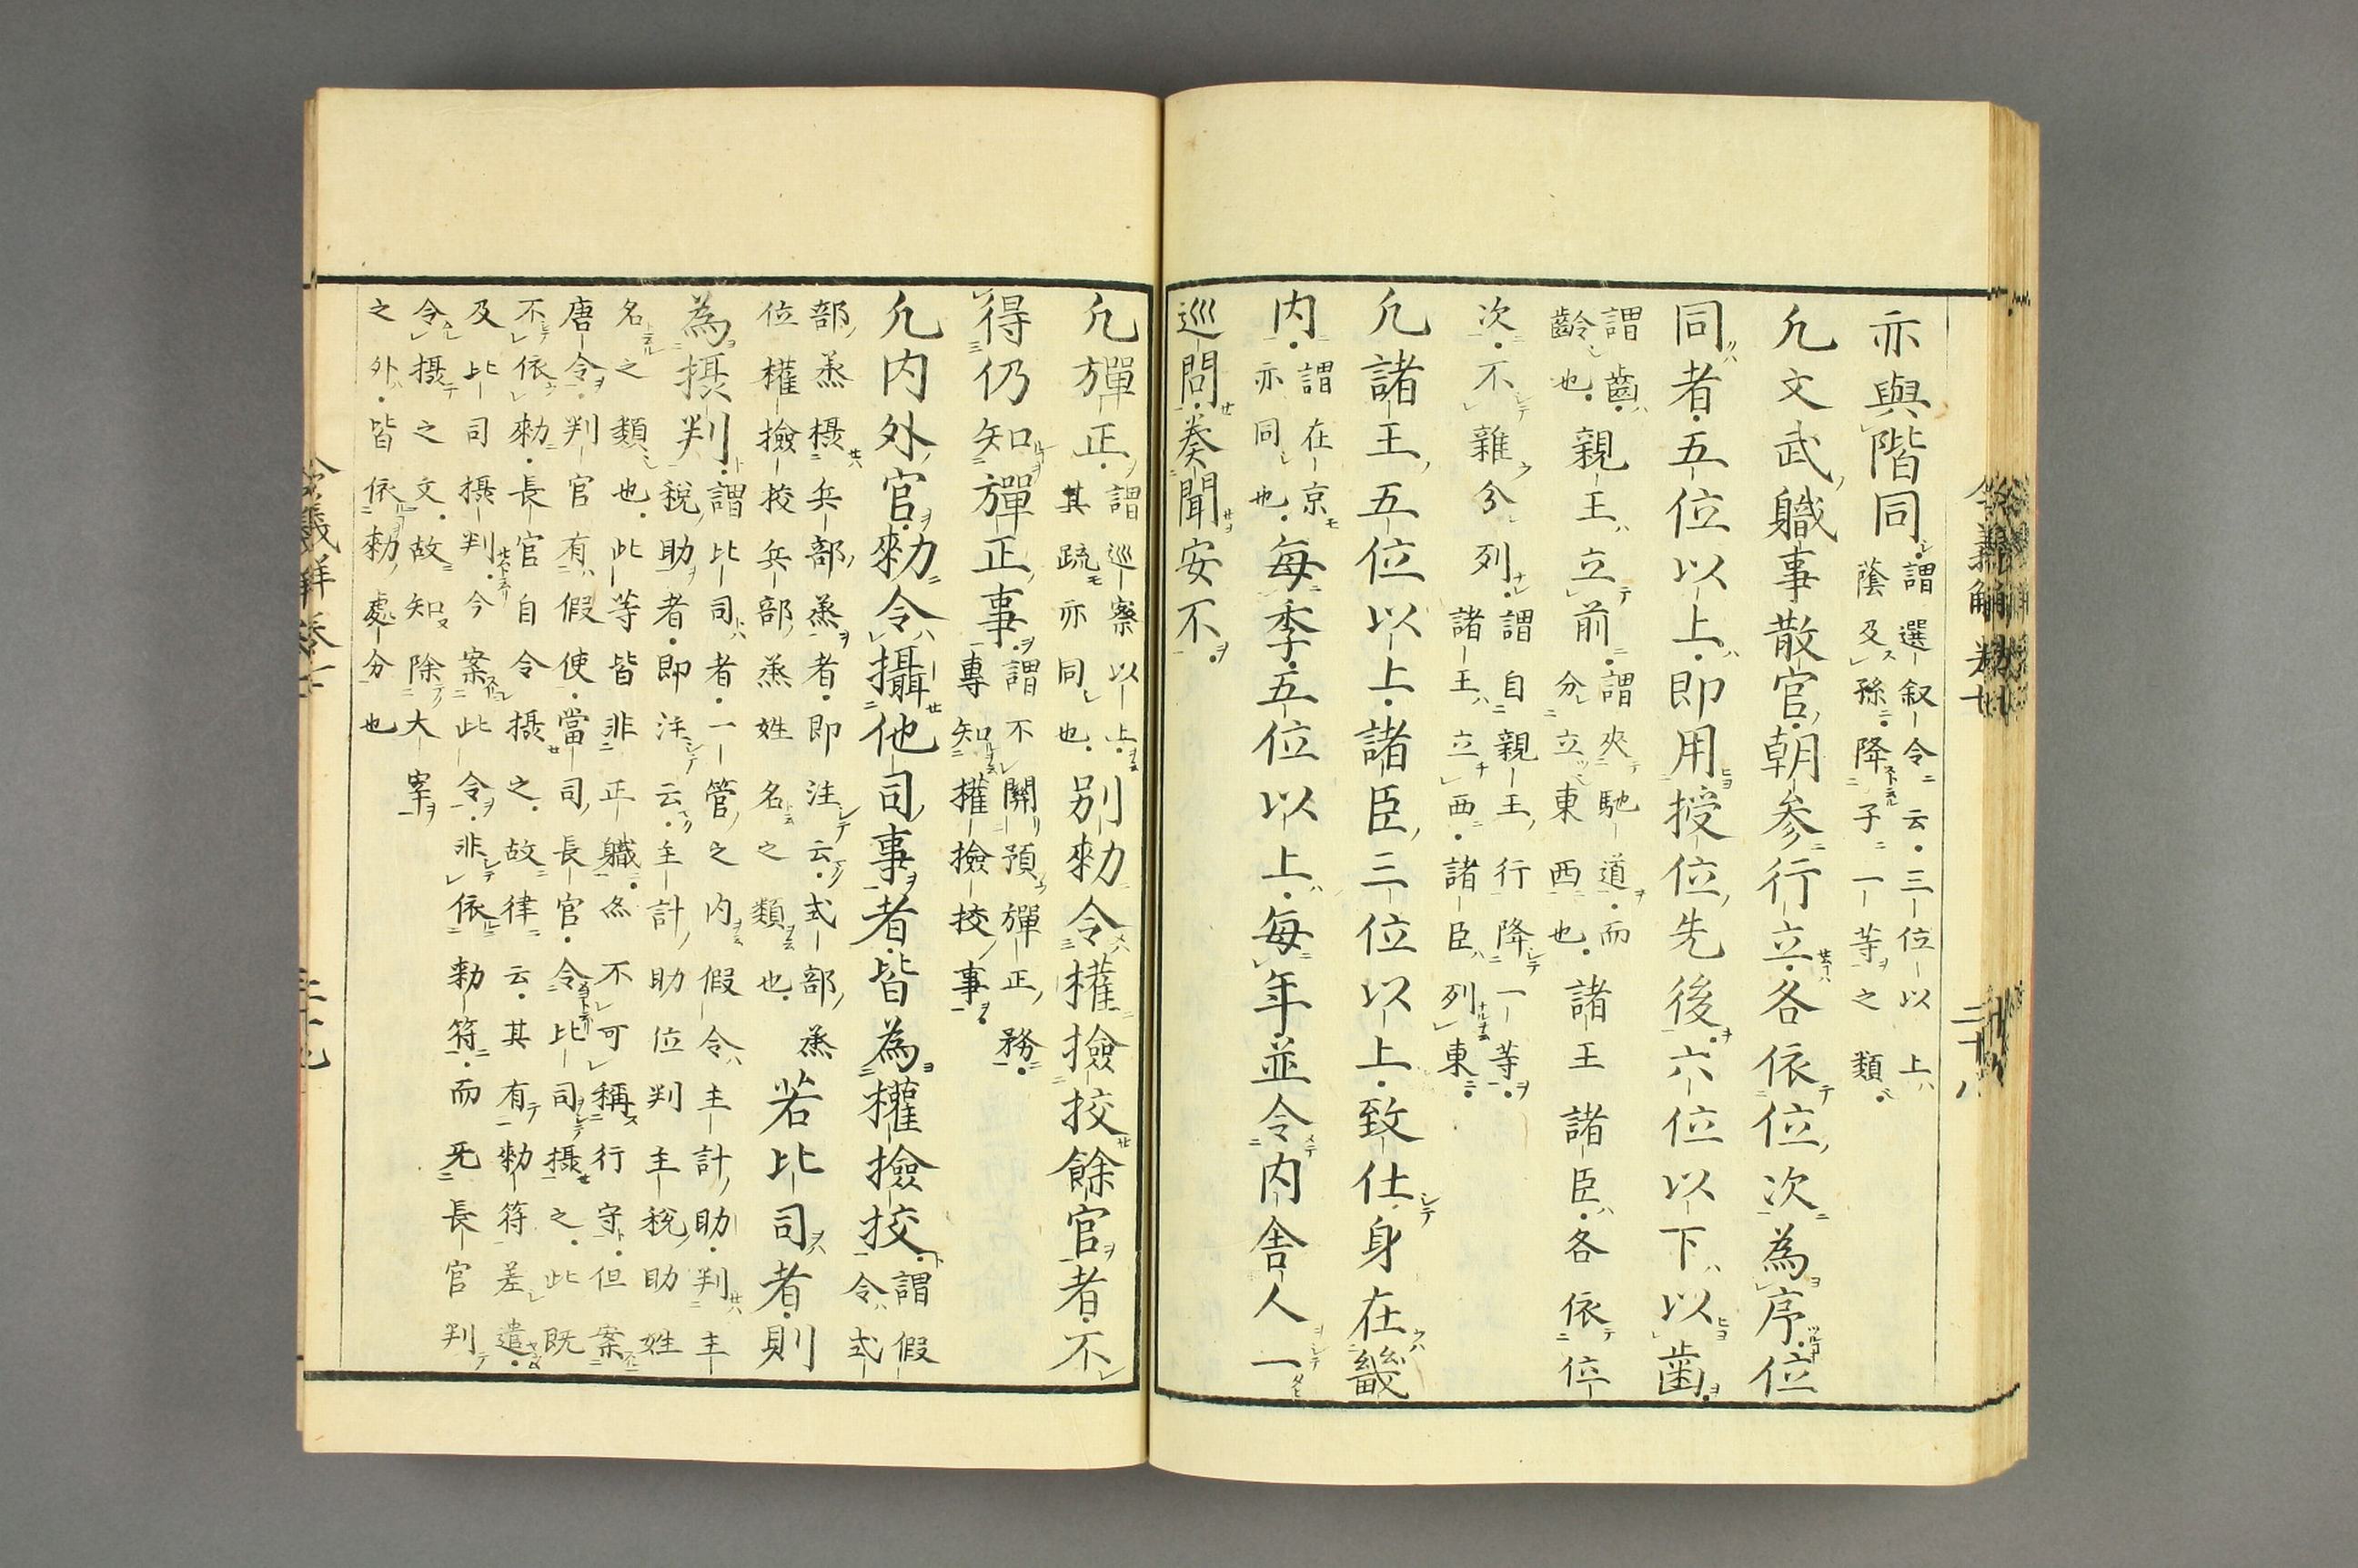 亦與階同謂選叙令云三位以上
蔭及孫降子一等之類
凢文武職事散官朝参行立各依位次為序位
同者五位以上即用授位先後六位以下以歯
謂齒
齢也親王立前謂夾馳道而
分立東西也諸王諸臣各依位
次不雜分列謂自親王行降一等
諸王立西諸臣列東
凢諸王五位以上諸臣三位以上致仕身在畿
内謂在京
亦同也每季五位以上每年並令内舎人一
巡問奏聞安不
凢彈正謂巡察以上
其疏亦同也別勑令權撿挍餘官者不
得仍知彈正事謂不關預彈正務
專知權撿挍事
凢内外官勑令攝他司事者皆為權撿挍謂假
令式
部丞摂兵部丞者即注云式部丞
位權撿挍兵部丞姓名之類也若比司者則
為摂判謂比司者一管之内假令主計助判主
税助者即注云主計助位判主税助姓
名之類也此等皆非正職亦不可稱行守但案
唐令判官有假使當司長官令比司摂之此既
不依勑長官自令摂之故律云其有勑符差遣
及比司摂判今案此令非依勑符而无長官判
令摂之文故知除大宰
之外皆依勑處分也
令義解卷十
二十八